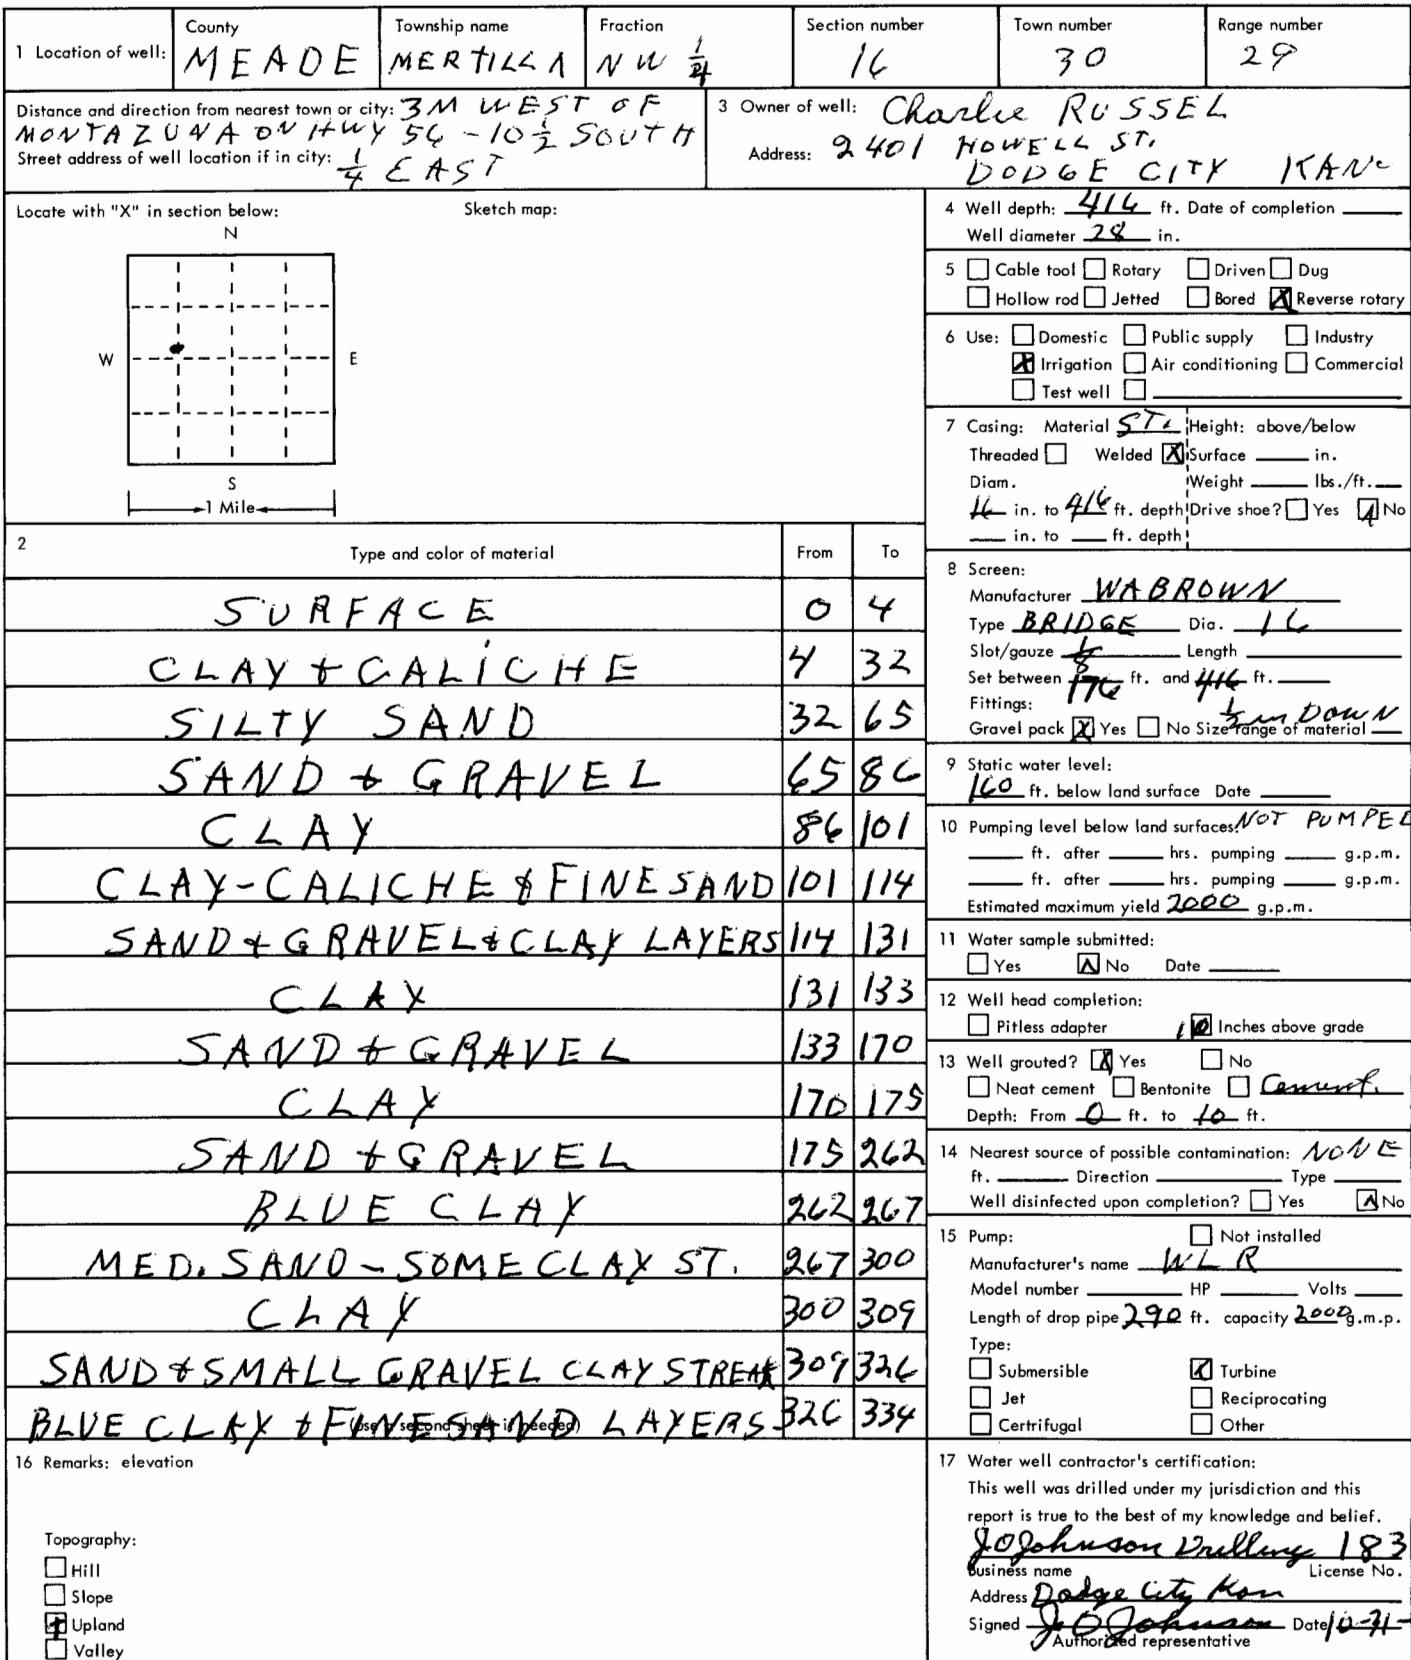 1 Location of well: County MEADE Township name MERTILLA Fraction NW 1/4 Section number 16 Town number 30 Range number 29
Distance and direction from nearest town or city: 3M WEST OF
MONTAZUNA ON HWY 56 - 10 1/2 SOUTH
Street address of well location if in city: 1/4 EAST
3 Owner of well: Charlie RUSSEL
Address: 2401 HOWELL ST.
DODGE CITY KAN
Locate with "X" in section below: Sketch map:
N
W E
S
1 Mile
2 Type and color of material From To
SURFACE 0 4
CLAY + CALICHE 4 32
SILTY SAND 32 65
SAND + GRAVEL 65 86
CLAY 86 101
CLAY-CALICHE & FINE SAND 101 114
SAND + GRAVEL & CLAY LAYERS 114 131
CLAY 131 133
SAND & GRAVEL 133 170
CLAY 170 175
SAND + GRAVEL 175 262
BLUE CLAY 262 267
MED. SAND - SOME CLAY ST. 267 300
CLAY 300 309
SAND & SMALL GRAVEL CLAY STREAK 309 326
BLUE CLAY & FINE SAND LAYERS- 326 334
(Use a second sheet if needed)
16 Remarks: elevation
Topography:
Hill
Slope
Upland
Valley
4 Well depth: 416 ft. Date of completion
Well diameter 28 in.
5 Cable tool Rotary Driven Dug
Hollow rod Jetted Bored X Reverse rotary
6 Use: Domestic Public supply Industry
X Irrigation Air conditioning Commercial
Test well
7 Casing: Material ST. Height: above/below
Threaded Welded X Surface in.
Diam. Weight lbs./ft.
16 in. to 416 ft. depth Drive shoe? Yes No
in. to ft. depth
8 Screen:
Manufacturer WABROWN
Type BRIDGE Dia. 16
Slot/gauze 1/8 Length
Set between 176 ft. and 416 ft.
Fittings: 1/2 in DOWN
Gravel pack X Yes No Size range of material
9 Static water level:
160 ft. below land surface Date
10 Pumping level below land surfaces: NOT PUMPED
ft. after hrs. pumping g.p.m.
ft. after hrs. pumping g.p.m.
Estimated maximum yield 2000 g.p.m.
11 Water sample submitted:
Yes No Date
12 Well head completion:
Pitless adapter Inches above grade
13 Well grouted? X Yes No
Neat cement Bentonite Cement.
Depth: From 0 ft. to 10 ft.
14 Nearest source of possible contamination: NONE
ft. Direction Type
Well disinfected upon completion? Yes No
15 Pump: Not installed
Manufacturer's name WLR
Model number HP Volts
Length of drop pipe 290 ft. capacity 2000 g.m.p.
Type:
Submersible X Turbine
Jet Reciprocating
Certrifugal Other
17 Water well contractor's certification:
This well was drilled under my jurisdiction and this
report is true to the best of my knowledge and belief.
J O Johnson Drilling 183
Business name License No.
Address Dodge City Kan
Signed J O Johnson Date
Authorized representative